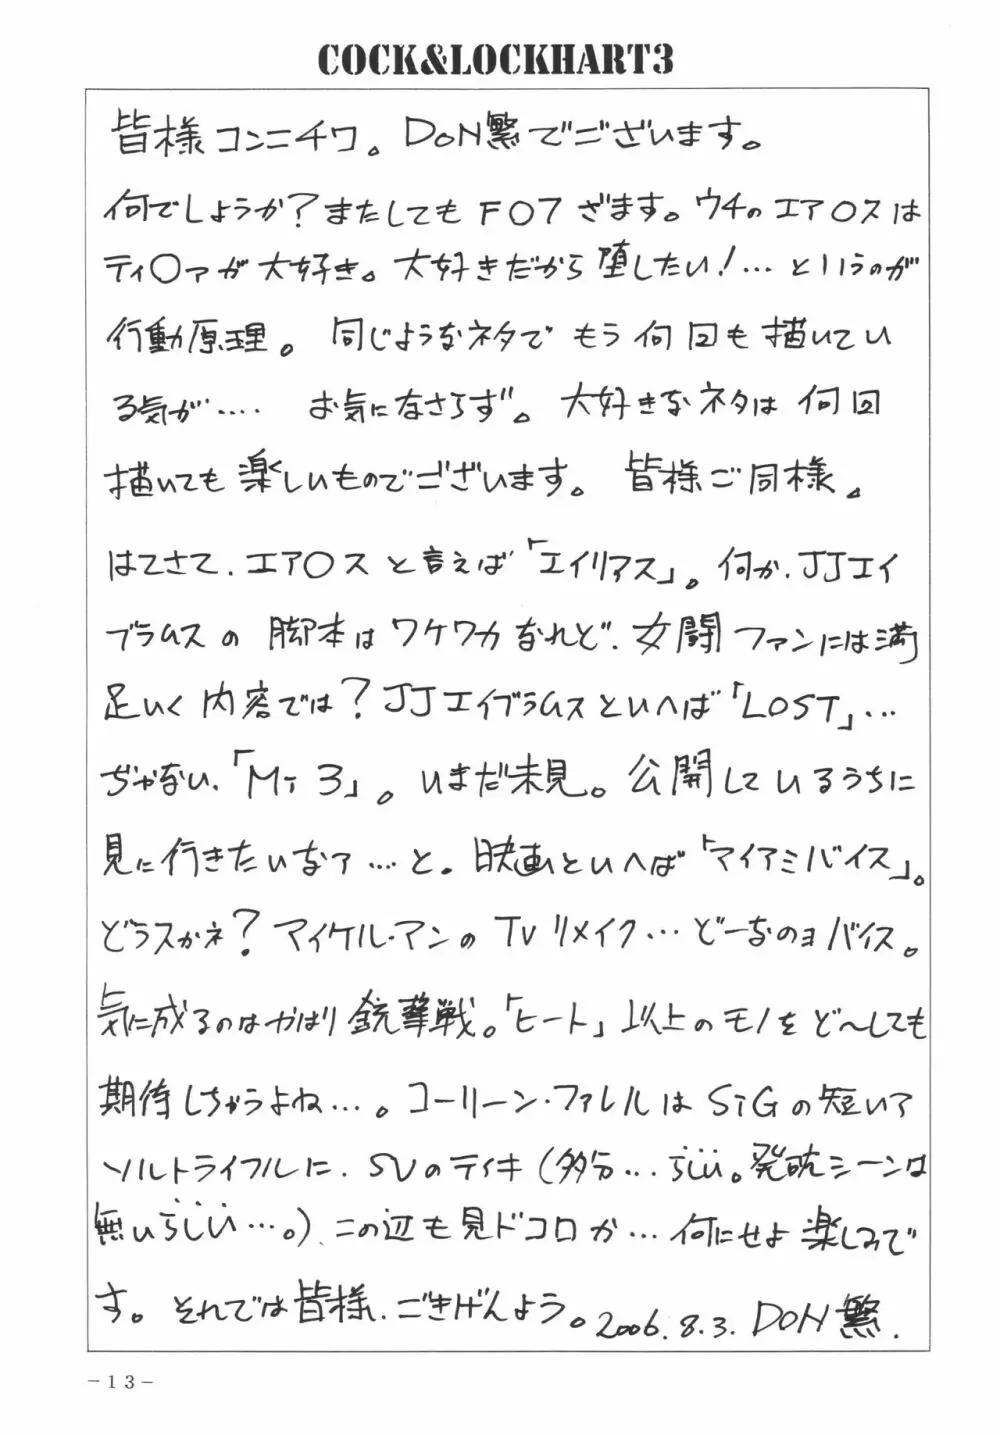 COCK&LOCKHART3
皆様コンニチワ。DON繁でございます。
何でしょうか？またしてもF○7ざます。ウチのエア○スは
ティ○ァが大好き。大好きだから堕したい！…というのが
行動原理。同じようなネタでもう何回も描いてい
る気が‥‥ お気になさらず。大好きなネタは何回
描いても楽しいものでございます。皆様ご同様。
はてさて、エア○スと言えば「エイリアス」。何か、JJエイ
ブラムスの脚本はワケワカなれど、女闘ファンには満
足いく内容では？JJエイブラムスといへば「LOST」…
ぢゃない、「Mi3」。いまだ未見。公開しているうちに
見に行きたいなァ…と。映画といへば「マイアミバイス」。
どうスかネ？マイケル・マンのTVリメイク…どーなのョバイス。
気に成るのはやはり銃撃戦。「ヒート」以上のモノをど〜しても
期待しちゃうよね…。コーリーン・ファレルはSiGの短いア
ソルトライフルに、SVのティキ（多分…らしい。発砲シーンは
無いらしい…。）、この辺も見ドコロか…何にせよ楽しみで
す。それでは皆様、ごきげんよう。2006.8.3. DON繁.
－13－